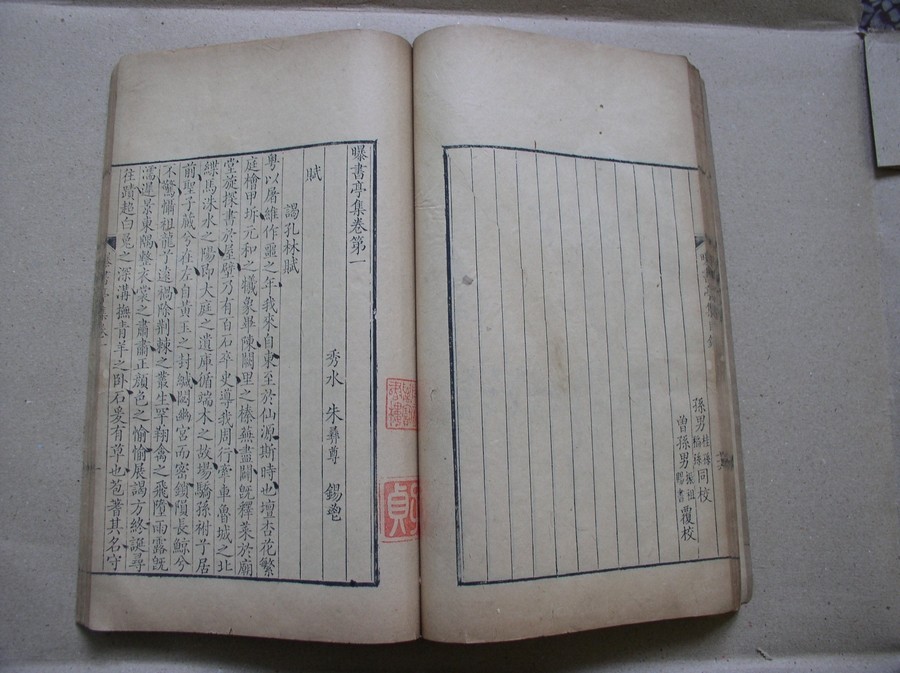 孫男桂孫稻孫同校
曾孫男振祖賜書覆校
曝書亭集卷第一
秀水 朱彝尊 錫鬯
賦
謁孔林賦
粵以屠維作噩之年我來自東至於仙源斯時也壇杏花繁
庭檜甲坼元和之犧象畢陳闕里之榛蕪盡闢旣釋菜於廟
堂旋探書於屋壁乃有百石卒史導我周行牽車魯城之北
緤馬洙水之陽即大庭之遺庫循端木之故場驕孫祔子居
前聖子蕆兮在左自黃玉之封緘閟幽宮而密鎖隕長鯨兮
不驚懾祖龍于遠禍除荆棘之叢生罕翔禽之飛墮雨露旣
濡遲景東隅整衣裳之肅肅正顏色之愉愉展謁方終誕尋
往蹟起白兎之深溝撫青羊之臥石爰有草也苞蓍其名守
貞